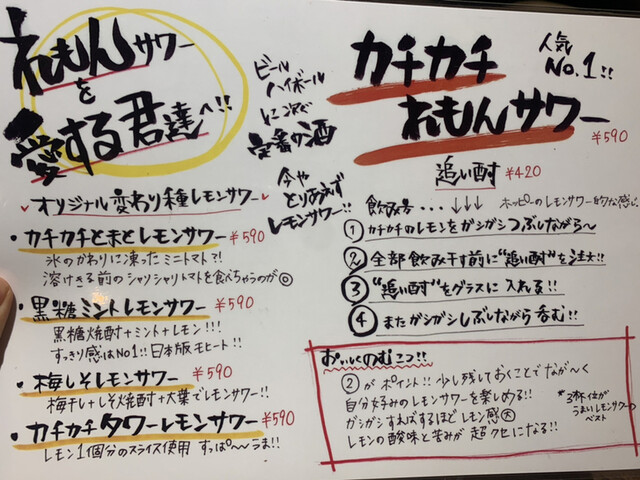 れもんサワー
を
愛する君達へ!!
ビール
ハイボール
に次ぐ
定番の酒
今や
とりあえず
レモンサワー!!
オリジナル変わり種レモンサワー
・カチカチとまとレモンサワー ¥590
氷のかわりに凍ったミニトマト?!
溶けきる前のシャリシャリトマトを食べちゃうのが◎
・黒糖ミントレモンサワー ¥590
黒糖焼酎+ミント+レモン!!!
すっきり感はNo.1!!日本版モヒート!!
・梅しそレモンサワー ¥590
梅干し+しそ焼酎+大葉でレモンサワー!!
・カチカチタワーレモンサワー ¥590
レモン1個分のスライス使用 すっぱ〜〜うま!!
カチカチ
れもんサワー
人気
No.1!!
¥590
追い酎 ¥420
飲み方・・・↓↓↓ ホッピーのレモンサワー的な感じ。
① カチカチのレモンをガシガシつぶしながら〜
② 全部飲み干す前に"追い酎"を注文!!
③ "追い酎"をグラスに入れる!!
④ またガシガシしぶしながら呑む!!
おいしくのむコツ!!
②がポイント!!少し残しておくことでなが〜く
自分好みのレモンサワーを楽しめる!!
ガシガシすればするほどレモン感大
レモンの酸味と苦みが超クセになる!!
*3杯体が
うまいレモンサワーの
ベスト